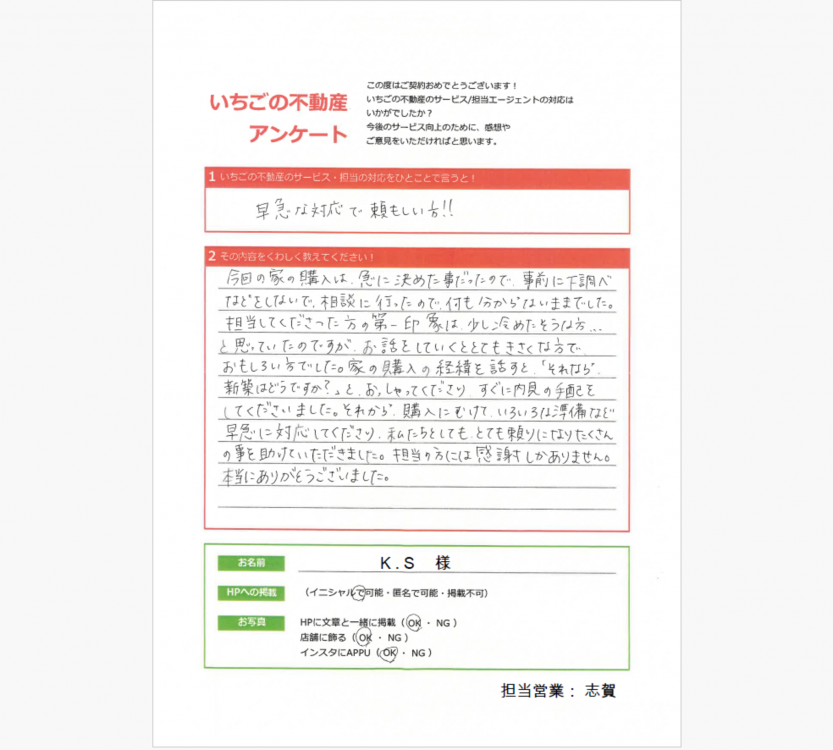 いちごの不動産
アンケート
この度はご契約おめでとうございます！
いちごの不動産のサービス/担当エージェントの対応は
いかがでしたか？
今後のサービス向上のために、感想や
ご意見をいただければと思います。
1 いちごの不動産のサービス・担当の対応をひとことで言うと！
早急な対応で頼もしい方!!
2 その内容をくわしく教えてください！
今回の家の購入は、急に決めた事だったので、事前に下調べ
などをしないで、相談に行ったので、何も分からないままでした。
担当してくださった方の第一印象は、少し冷めたそうな方...
と思っていたのですが、お話をしていくととてもきさくな方で、
おもしろい方でした。家の購入の経緯を話すと、「それなら、
新築はどうですか？」と、おっしゃってくださり、すぐに内見の手配を
してくださいました。それから、購入にむけて、いろいろな準備など
早急に対応してくださり、私たちとしても、とても頼りになりたくさん
の事を助けていただきました。担当の方には感謝しかありません。
本当にありがとうございました。
お名前 K.S 様
HPへの掲載 （イニシャルで可能・匿名で可能・掲載不可）
お写真 HPに文章と一緒に掲載（ OK ・ NG ）
店舗に飾る（ OK ・ NG ）
インスタにAPPU（ OK ・ NG ）
担当営業： 志賀